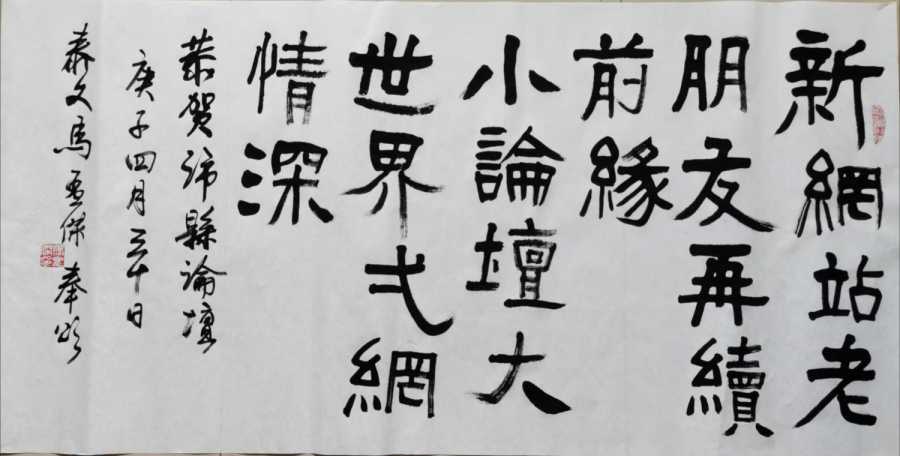 新網站老
朋友再續
前緣
小論壇大
世界弍網
情深
恭賀沛縣論壇
庚子四月三十日
泰文馬亞傑奉頌